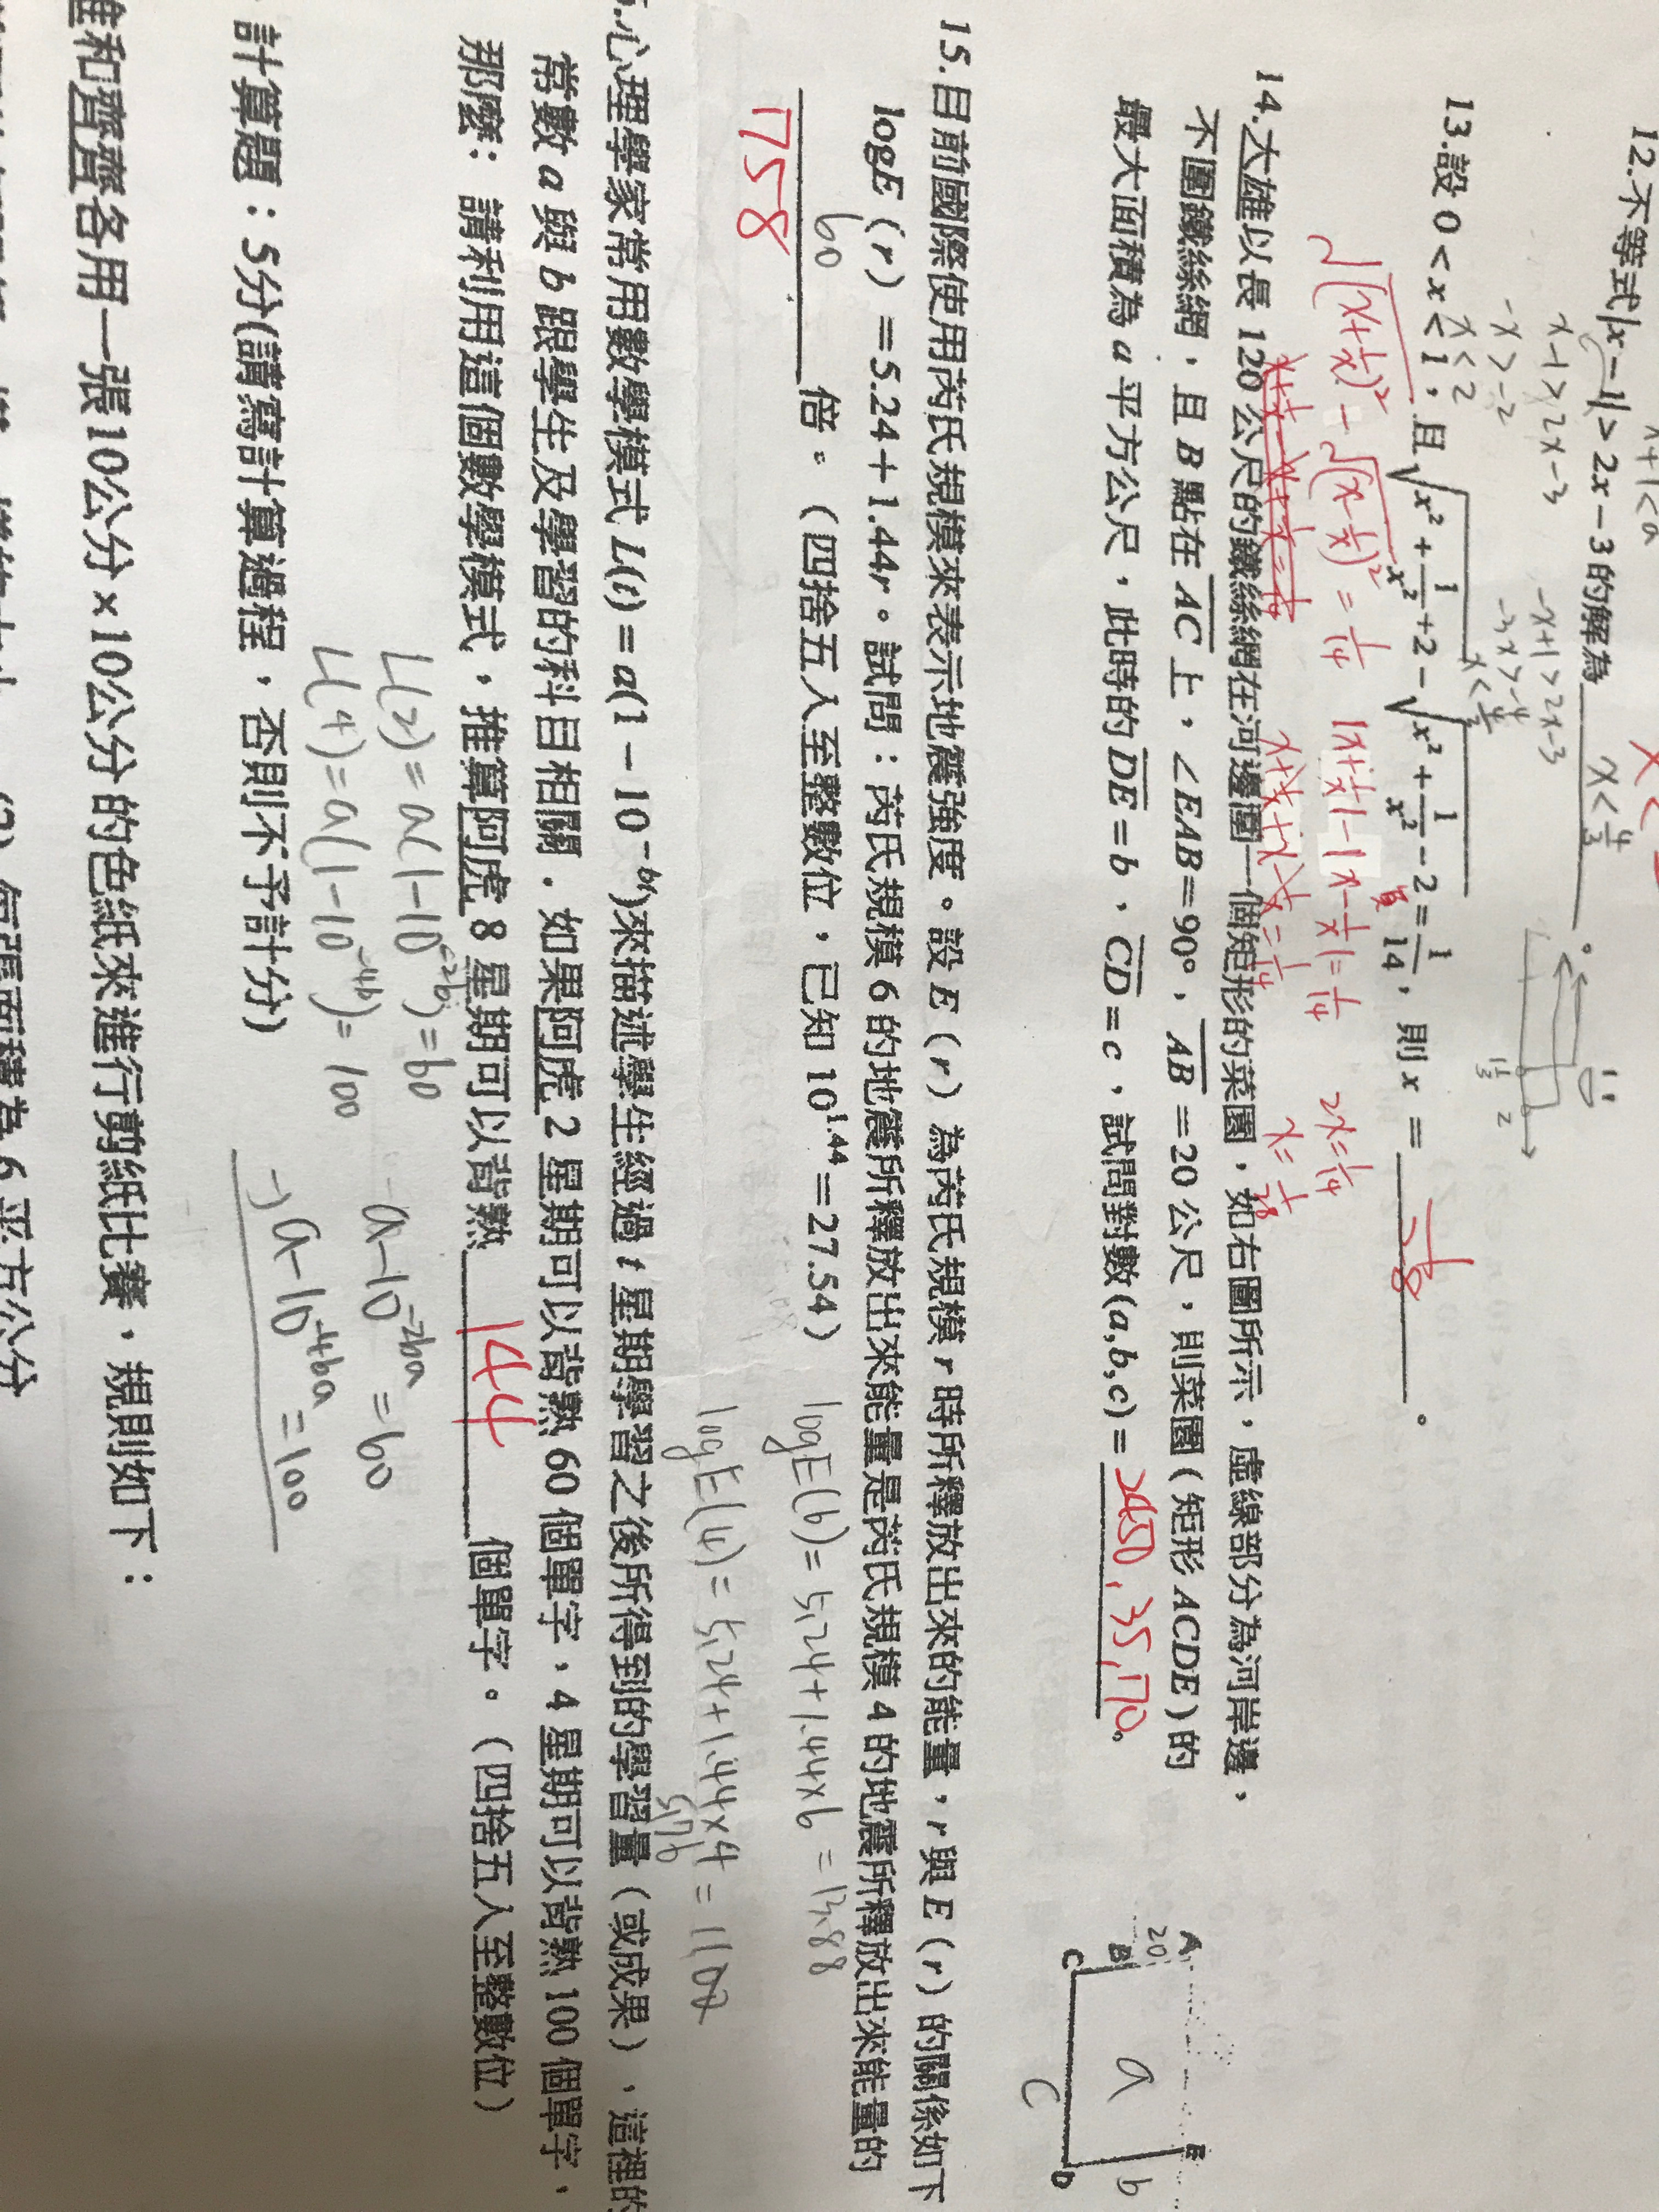 x+1<a
12.不等式|x-1|>2x-3的解為 x<4/3 。
x-1>2x-3
-x>-2
x<2
-x+1>2x-3
-3x>-4
x<4/3
4/3 2
13.設0<x<1，且√(x²+1/x²+2)-√(x²+1/x²-2)=1/14，則x= 1/28 。
√(x+1/x)²-√(x-1/x)²=1/14 |x+1/x|-|x-1/x|=1/14 2x=1/14
x+1/x+x-1/x=1/14 x=1/28
14.大雄以長120公尺的鐵絲網在河邊圍一個矩形的菜園，如右圖所示，虛線部分為河岸邊，
不圍鐵絲網，且B點在AC上，∠EAB=90°，AB=20公尺，則菜園(矩形ACDE)的
最大面積為a平方公尺，此時的DE=b、CD=c，試問對數(a,b,c)= 2450,35,70。
A E
20
B a b
C D
C
15.目前國際使用芮氏規模來表示地震強度。設E(r)為芮氏規模r時所釋放出來的能量，r與E(r)的關係如下
logE(r)=5.24+1.44r。試問：芮氏規模6的地震所釋放出來能量是芮氏規模4的地震所釋放出來能量的
60 倍。(四捨五入至整數位，已知10^1.44=27.54)
758
logE(6)=5.24+1.44×6=13.88
logE(4)=5.24+1.44×4=11.00
5.76
.心理學家常用數學模式L(t)=a(1-10^-bt)來描述學生經過t星期學習之後所得到的學習量(或成果)，這裡的
常數a與b跟學生及學習的科目相關．如果阿虎2星期可以背熟60個單字，4星期可以背熟100個單字，
那麼：請利用這個數學模式，推算阿虎8星期可以背熟 144 個單字。(四捨五入至整數位)
L(2)=a(1-10^-2b)=60 a-10^-2ba=60
L(4)=a(1-10^-4b)=100 -)a-10^-4ba=100
計算題：5分(請寫計算過程，否則不予計分)
和齊齊各用一張10公分×10公分的色紙來進行剪紙比賽，規則如下：
(2)每張面積為6平方公分